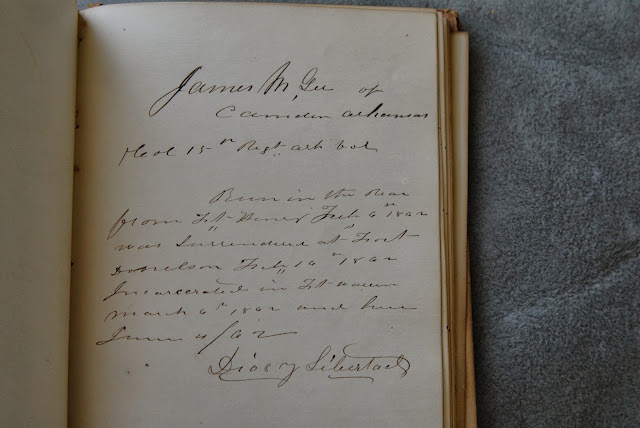 James M. Gee of
Camden Arkansas
Col 15th Regt Ark vol
Run in the Rear
from Ft Henry Feb 6th 1862
was Surrendered at Fort
Donelson Feb 16th 1862
Incarcerated in Ft Warren
March 6th 1862 and here
June 4/62
Dios y Libertad